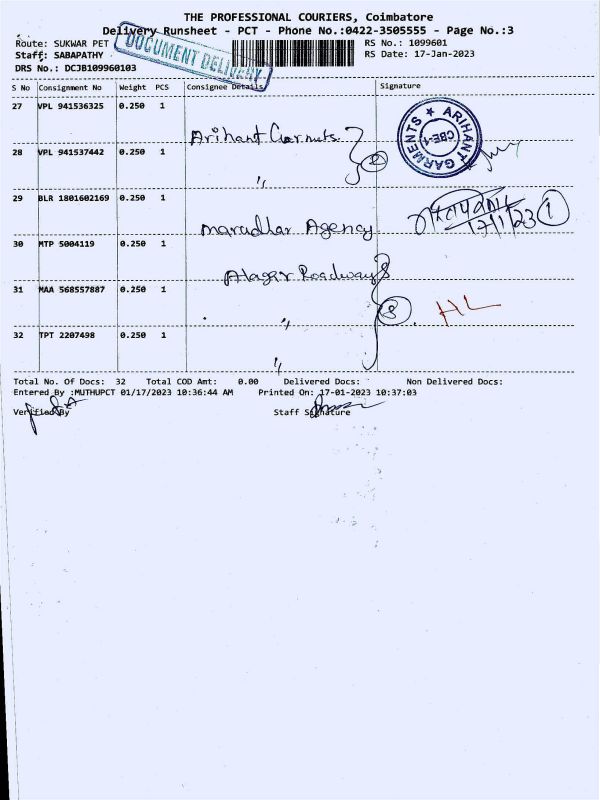 THE PROFESSIONAL COURIERS, Coimbatore
Delivery Runsheet - PCT - Phone No.:0422-3505555 - Page No.:3
DOCUMENT DELIVERY
Route: SUKWAR PET
RS No.: 1099601
Staff: SABAPATHY
RS Date: 17-Jan-2023
DRS No.: DCJB109960103
S No Consignment No Weight PCS Consignee Details Signature
27 VPL 941536325 0.250 1
Arihant Garments
ARIHANT GARMENTS ★ CBE-1
28 VPL 941537442 0.250 1
2
"
29 BLR 1801602169 0.250 1
Marudhar Agency
17/1/23 1
30 MTP 5004119 0.250 1
Alagar Roadways
31 MAA 568557887 0.250 1
" 3 HL
32 TPT 2207498 0.250 1
"
Total No. Of Docs: 32 Total COD Amt: 0.00 Delivered Docs: Non Delivered Docs:
Entered By :MUTHUPCT 01/17/2023 10:36:44 AM Printed On: 17-01-2023 10:37:03
Verified By Staff Signature